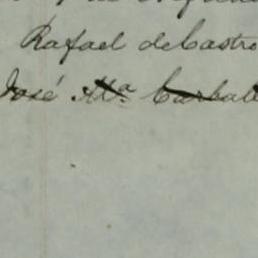 Rafael de Castro
José Mª Carbal